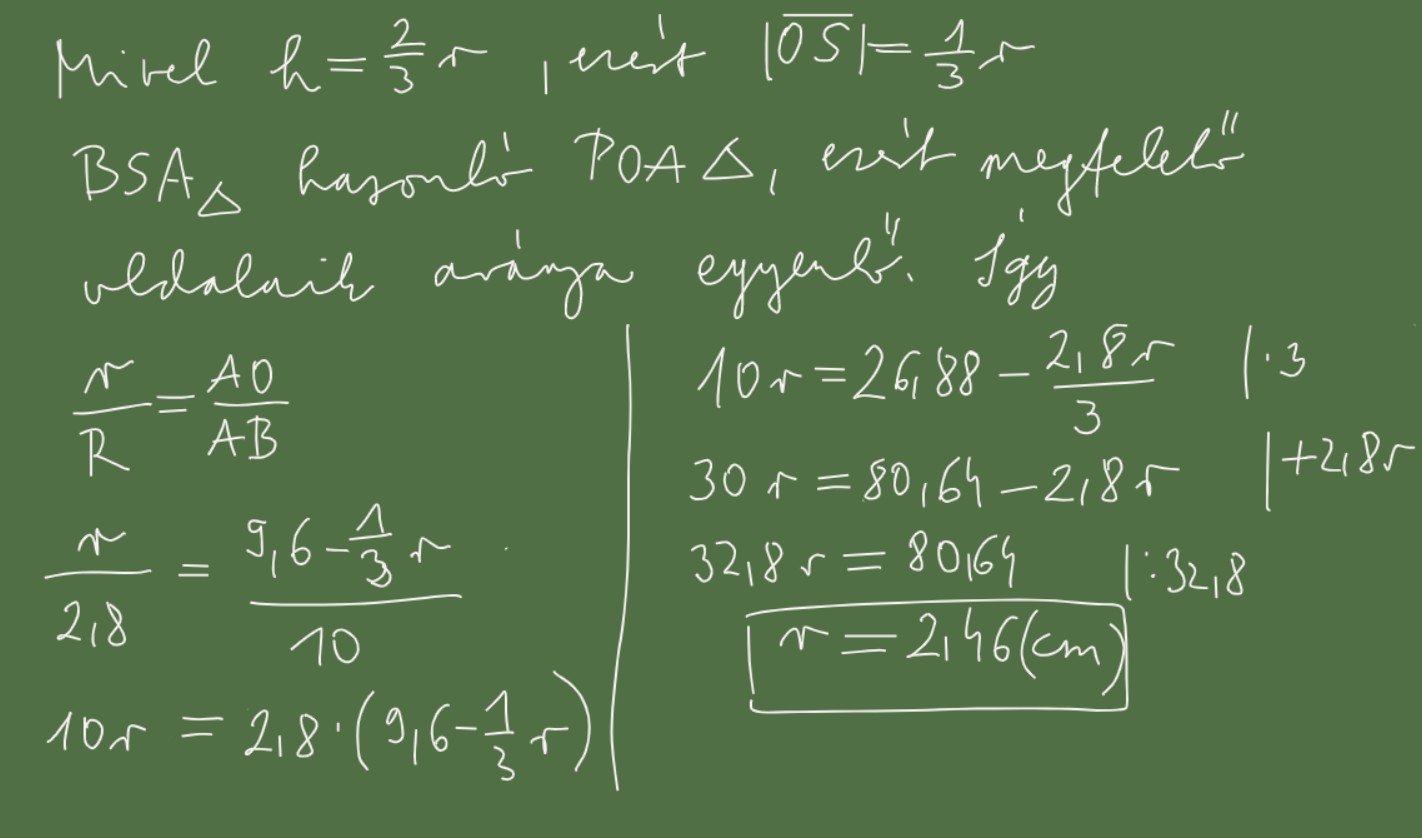 Mivel h = 2/3 r, ezért |OS| = 1/3 r
BSA△ hasonló POA△, ezért megfelelő
oldalaik aránya egyenlő. Így
r/R = AO/AB
r/2,8 = (9,6 - 1/3 r)/10
10r = 2,8·(9,6 - 1/3 r)
10r = 26,88 - 2,8r/3 |·3
30r = 80,64 - 2,8r |+2,8r
32,8r = 80,64 |:32,8
r = 2,46(cm)